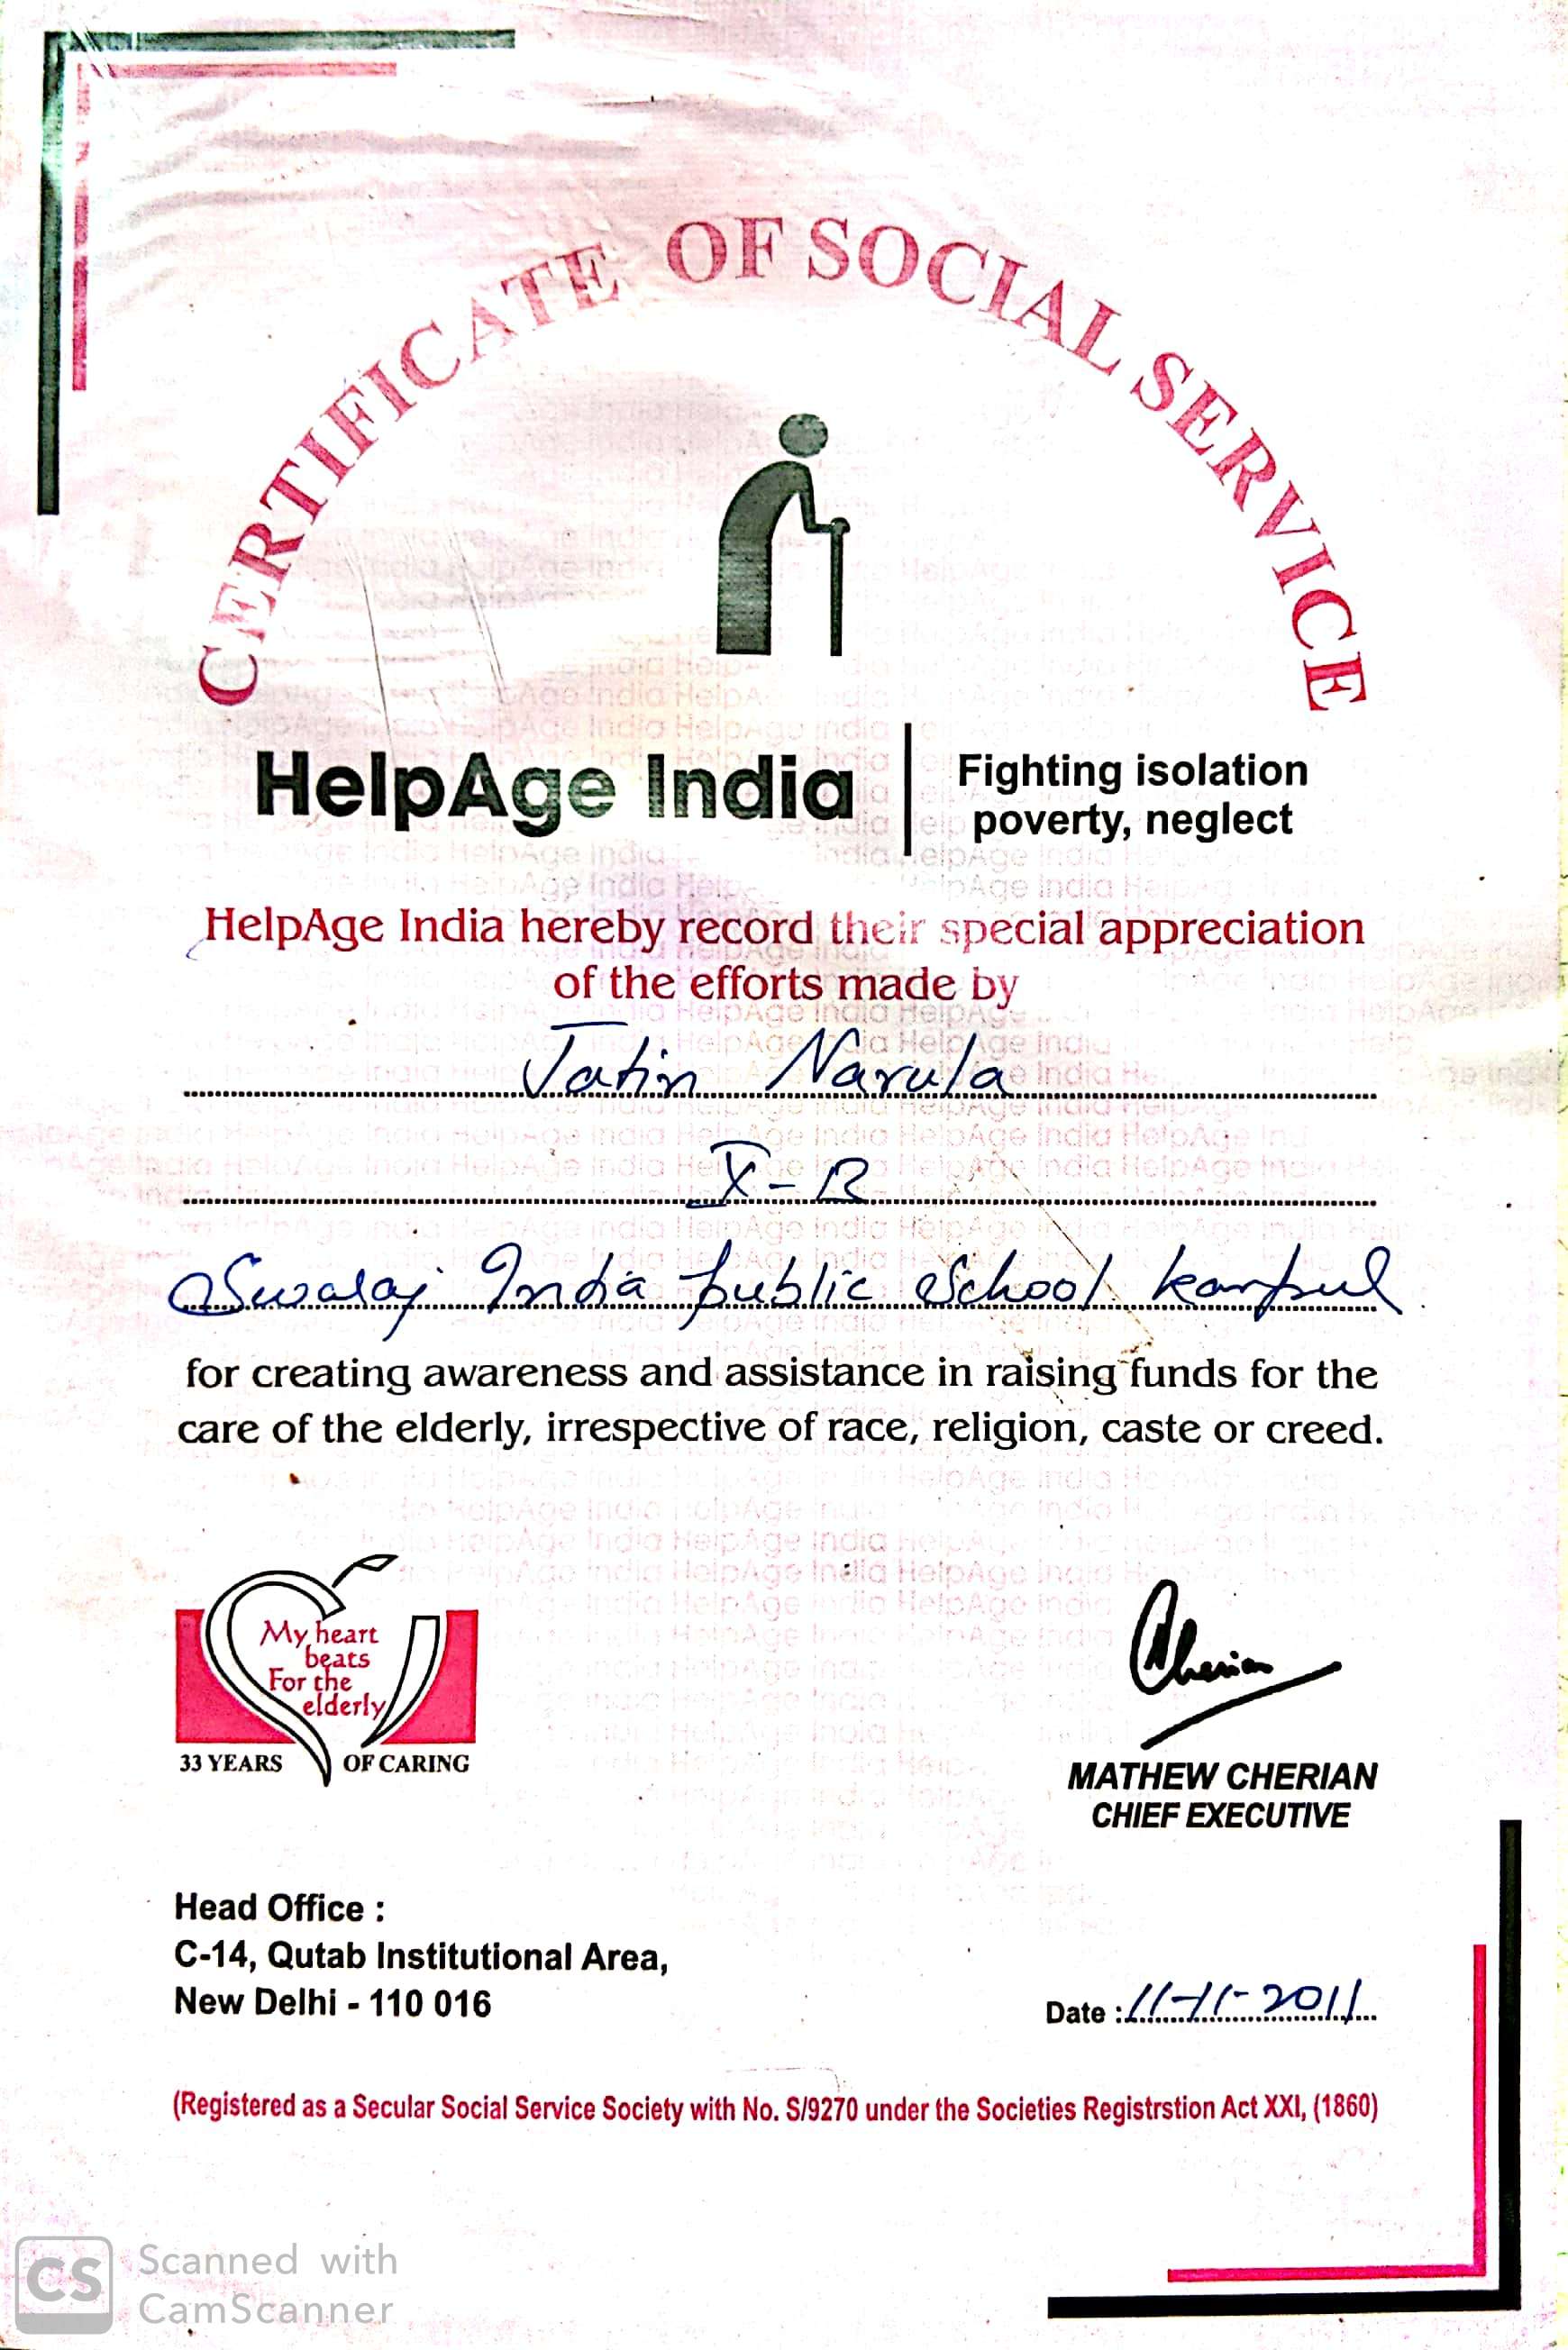 CERTIFICATE OF SOCIAL SERVICE
HelpAge India
Fighting isolation
poverty, neglect
HelpAge India hereby record their special appreciation
of the efforts made by
Jatin Narula
X-B
Swaraj India public School
for creating awareness and assistance in raising funds for the
care of the elderly, irrespective of race, religion, caste or creed.
My heart
beats
For the
elderly
33 YEARS OF CARING
Cherian
MATHEW CHERIAN
CHIEF EXECUTIVE
Head Office :
C-14, Qutab Institutional Area,
New Delhi - 110 016
Date : 11-11-2011
(Registered as a Secular Social Service Society with No. S/9270 under the Societies Registrstion Act XXI, (1860)
CS
Scanned with
CamScanner